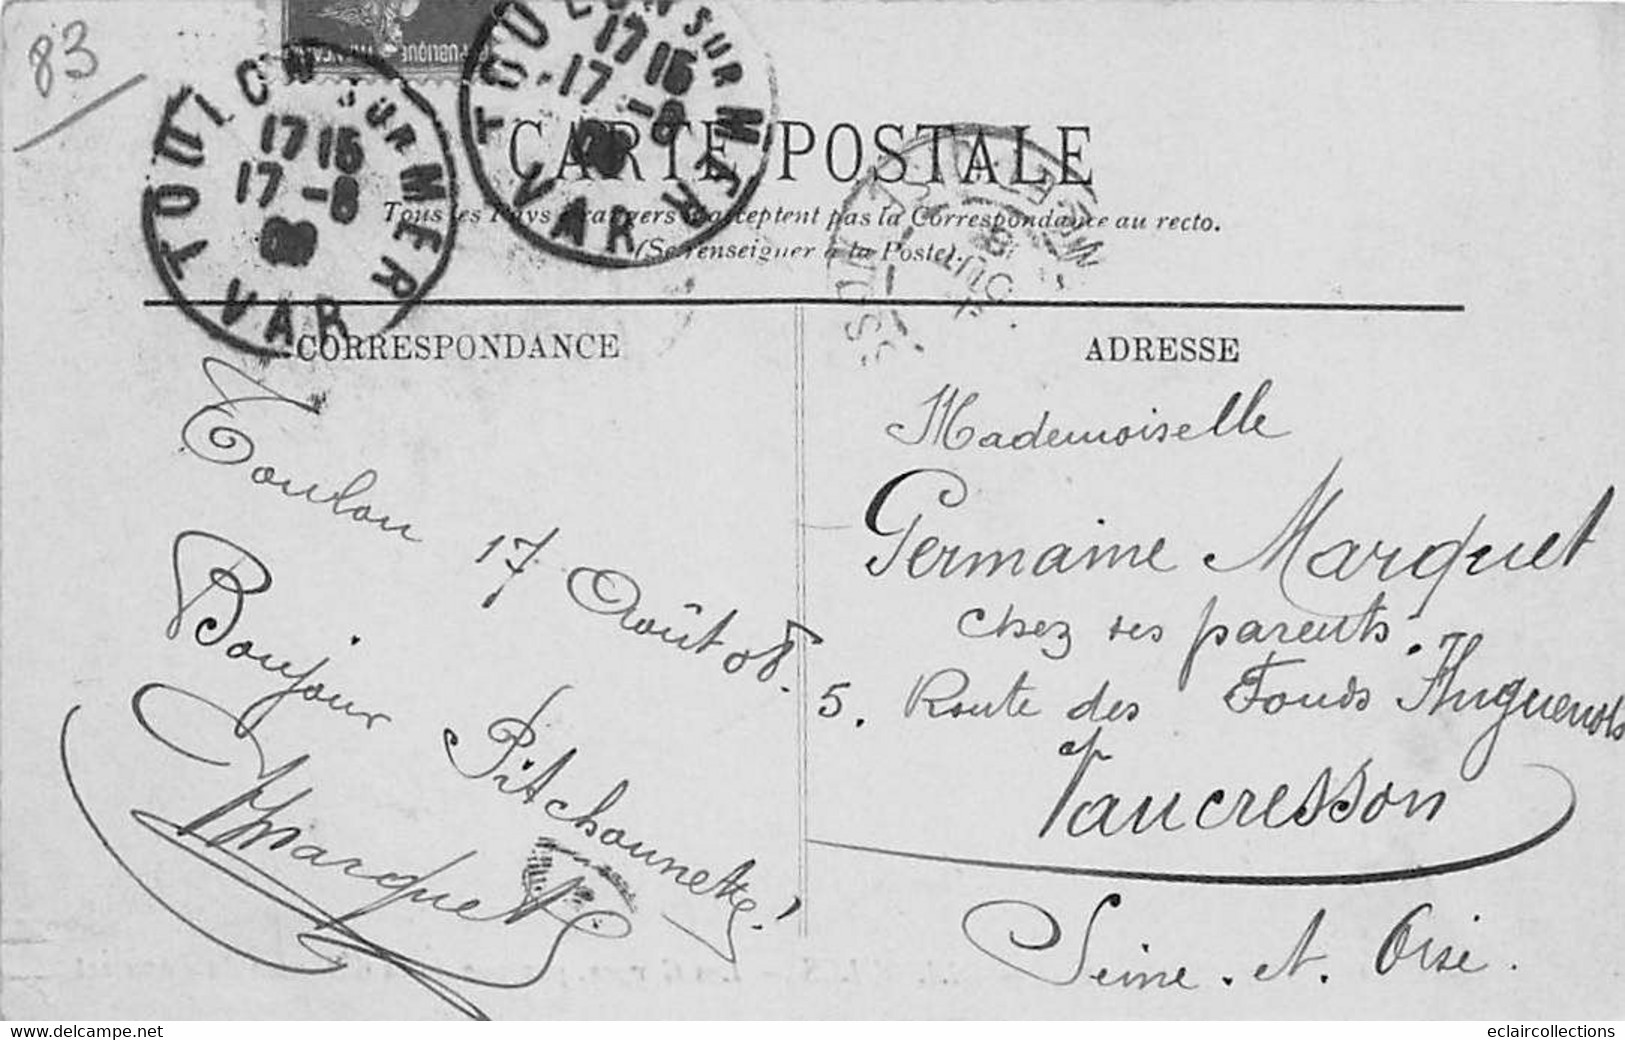 83
RÉPUBLIQUE FRANÇAISE
TOULON SUR MER
17 15
17 -8
08
VAR
TOULON SUR MER
17 15
17 -8
VAR
CARTE POSTALE
Tous les Pays étrangers n'acceptent pas la Correspondance au recto.
(Se renseigner à la Poste).
CORRESPONDANCE
Toulon 17 Août 08.
Bonjour Pitchounette!
Marquet
ADRESSE
Mademoiselle
Germaine Marquet
chez ses parents.
5. Route des Fonds Huguenots
Vaucresson
Seine-et-Oise.
www.delcampe.net
eclaircollections